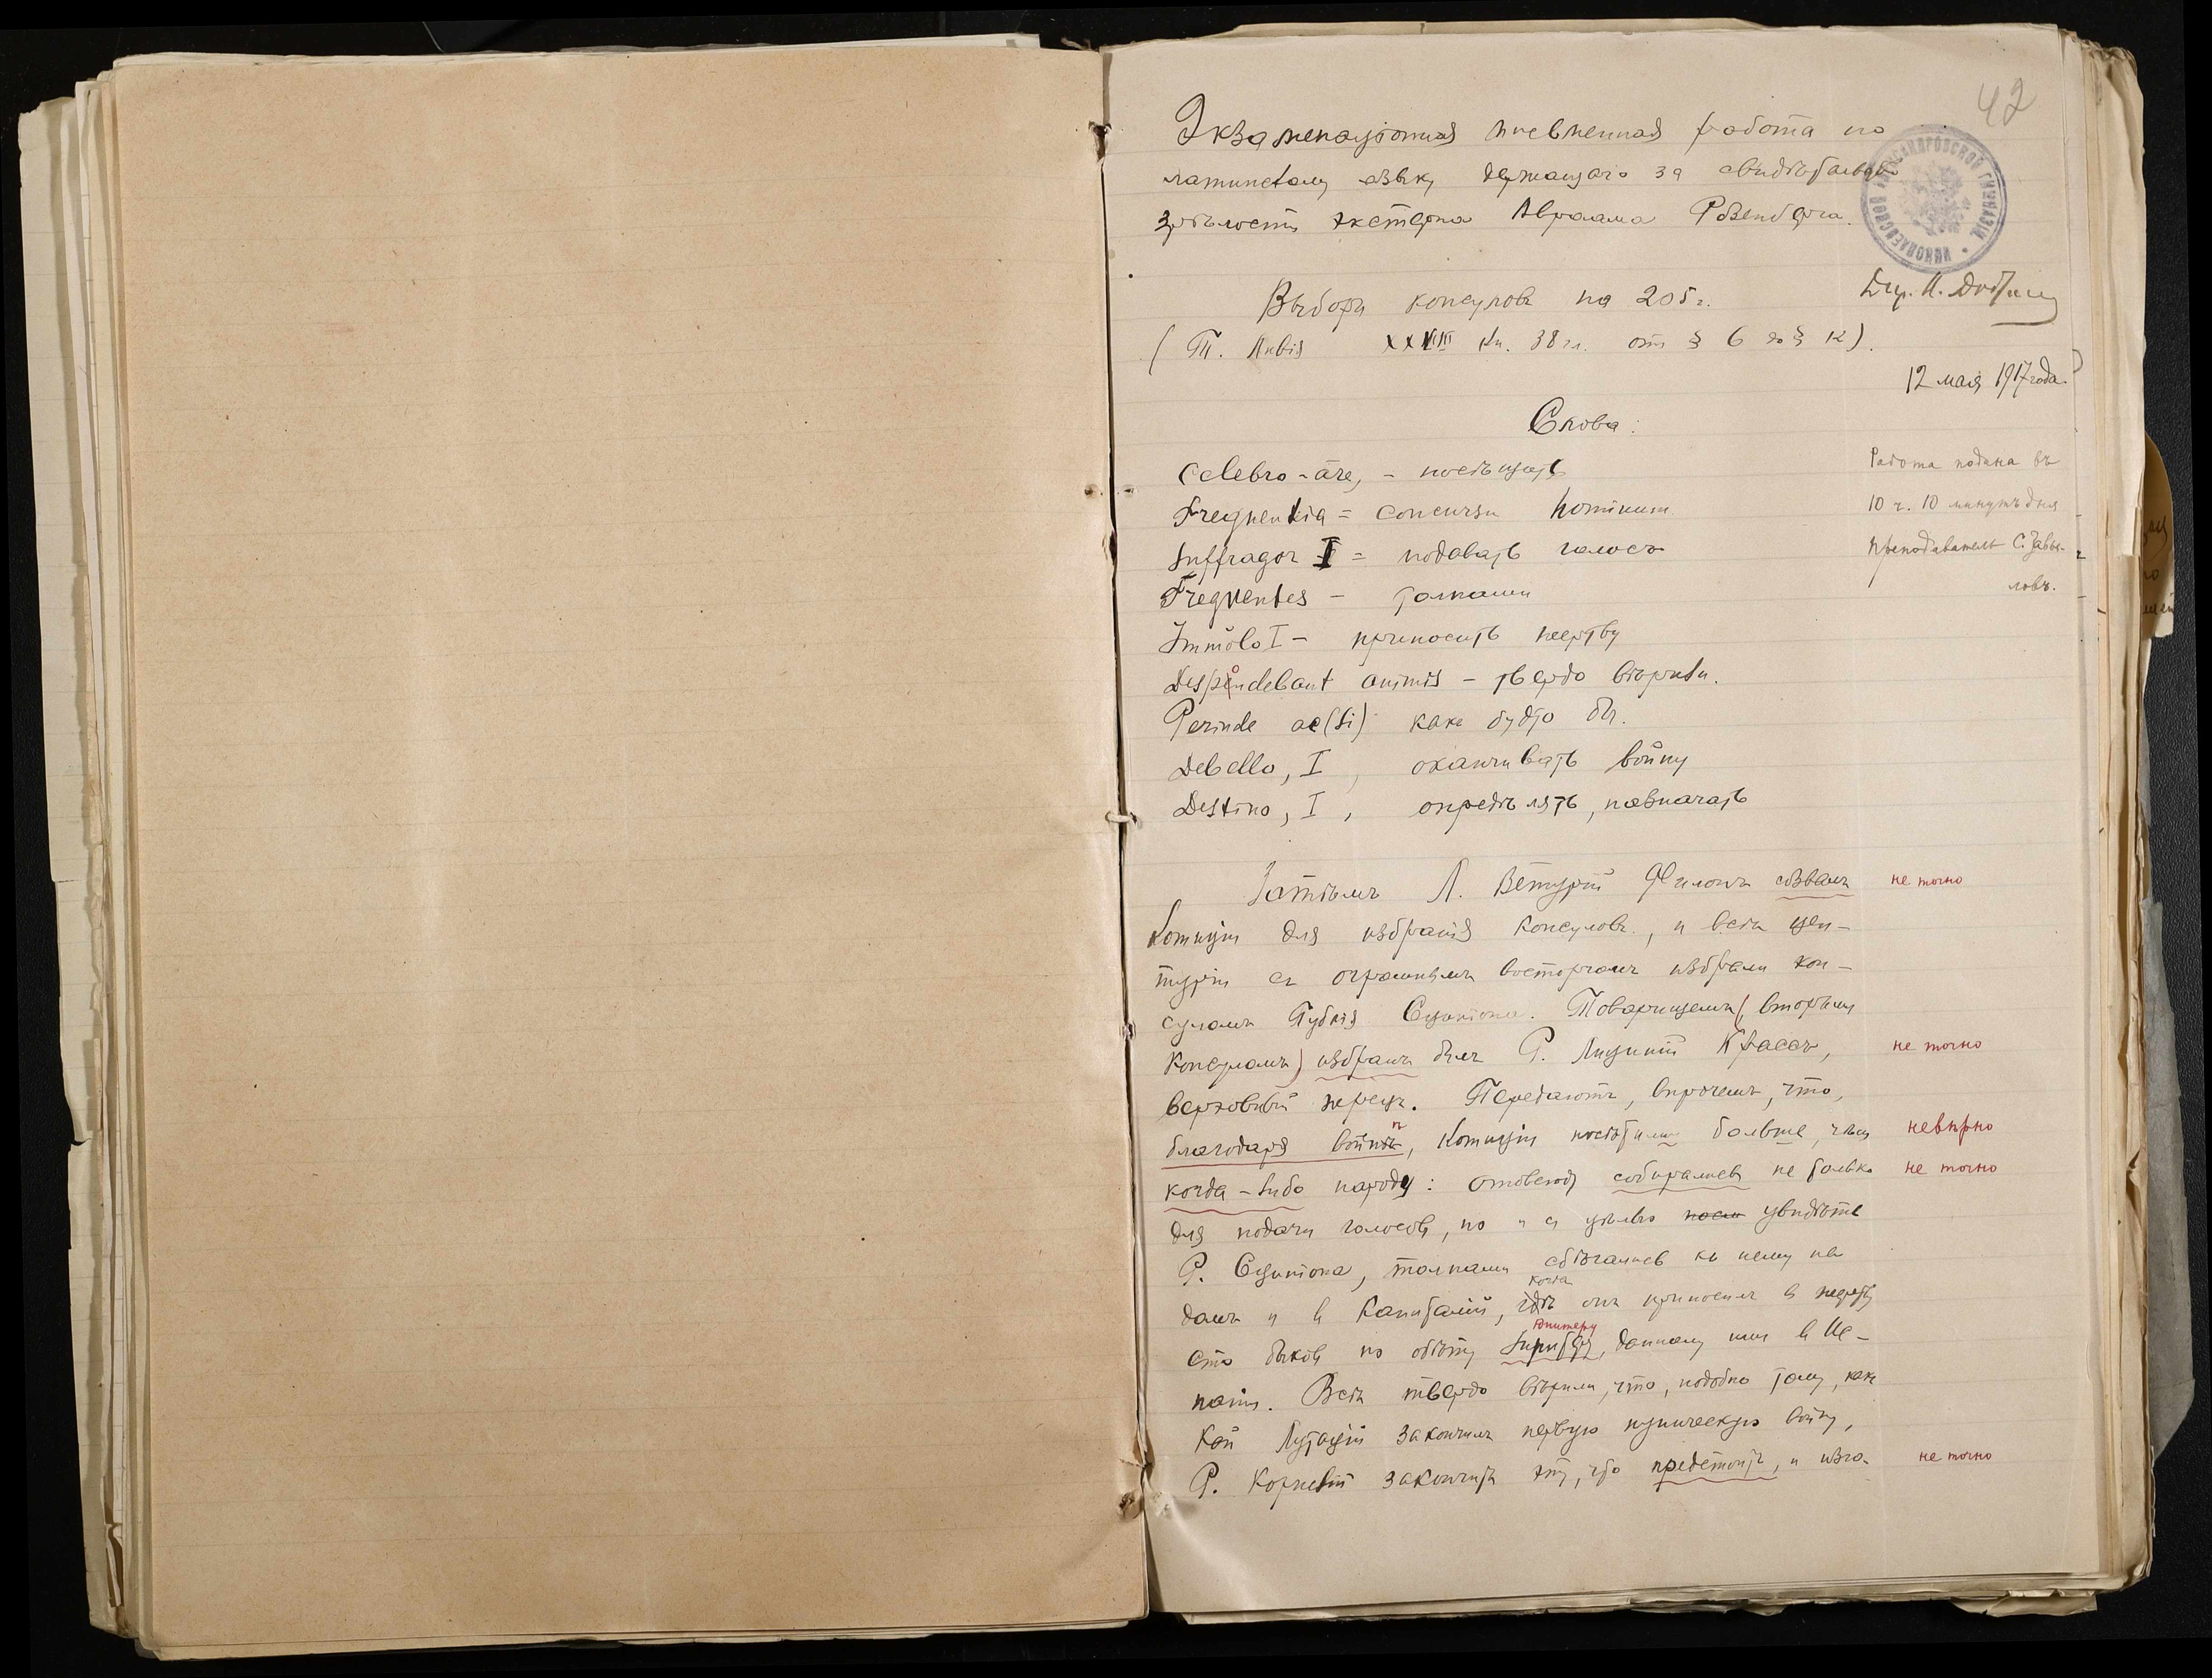 42
Экзаменаціонная письменная работа по
латинскому языку держащаго за свидѣтельство
зрѣлости экстерна Авраама Розенберга.
НИКОЛАЕВСКОЙ АЛЕКСАНДРОВСКОЙ ГИМНАЗІИ
Выборы консуловъ на 205 г.
Дир. И.
(Т. Ливія XXVIII кн. 38 гл. отъ § 6 до § 12).
12 мая 1917 года.
Слова:
Celebro-āre, - посѣщать
Frequentia = concursu hominum
Suffragor I = подавать голосъ
Frequentes - толпами
Immŏlo I - приносить жертву
Despondebant animis - твердо вѣрили.
Perinde ac (si) какъ будто бы.
Debello, I, оканчивать войну
Destino, I, опредѣлять, назначать
Работа подана въ
10 ч. 10 минутъ дня
Преподаватель С. Завья-
ловъ.
Затѣмъ Л. Ветурій Филонъ созвалъ не точно
Комиціи для избранія консуловъ, и всѣ цен-
туріи съ огромнымъ восторгомъ избрали кон-
суломъ Публія Сципіона. Товарищемъ (вторымъ
консуломъ) избранъ былъ P. Лициній Крассъ, не точно
верховный жрецъ. Передаютъ, впрочемъ, что,
благодаря войнѣ, Комиціи посѣтило больше, чѣмъ невѣрно
когда-либо народу: отовсюду собирались не только не точно
для подачи голосовъ, но и съ цѣлью увидѣть
P. Сципіона, толпами сбѣгались къ нему на
домъ и въ Капитолій, гдѣ когда онъ приносилъ въ жертву
сто быковъ по обѣту Юпитеру, данному имъ въ Ис-
паніи. Всѣ твердо вѣрили, что, подобно тому, какъ
Кай Лутацій закончилъ первую пуническую войну,
P. Корнелій закончитъ эту, что предстоитъ, и изго- не точно